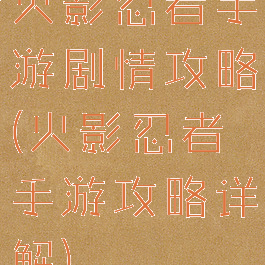 火影忍者手
游剧情攻略
(火影忍者
手游攻略详
解)